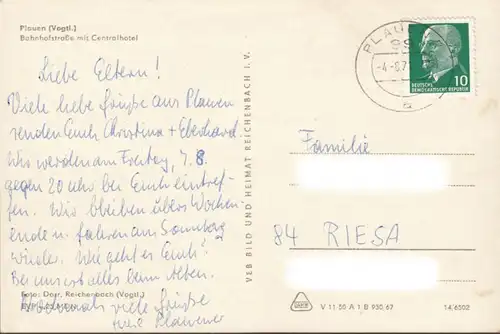 Plauen (Vogtl.)
Bahnhofstraße mit Centralhotel
Liebe Eltern!
Viele liebe Grüße aus Plauen
senden Euch Christina + Eberhard
Wir werden am Freitag, 7.8.
gegen 20 Uhr bei Euch eintref-
fen. Wir bleiben übers Wochen-
ende u. fahren am Sonntag
wieder. Wie geht es Euch?
Bei uns ist alles beim Alten.
Foto: Darr, Reichenbach (Vogtl.)
Nochmals viele Grüße
Eure Plauener
VEB BILD UND HEIMAT REICHENBACH I. V.
PLAU
-4.-8.7
a
DEUTSCHE
DEMOKRATISCHE REPUBLIK
10
Familie
84 RIESA
V 11 50 A 1 B 930/67
14/6502